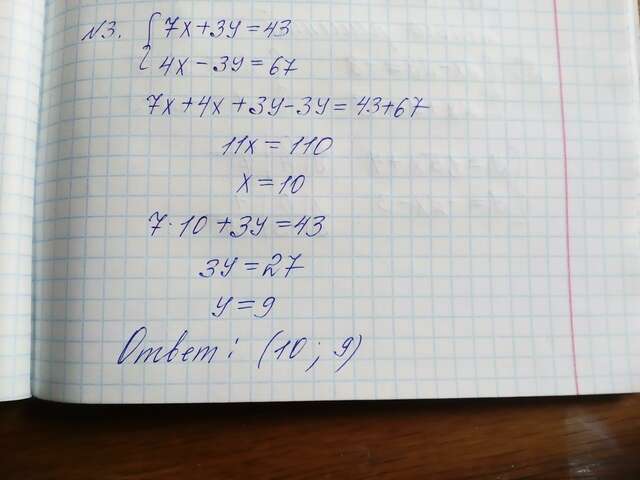 №3. { 7x+3y=43
4x-3y=67
7x+4x+3y-3y=43+67
11x=110
x=10
7·10+3y=43
3y=27
y=9
Ответ: (10; 9)